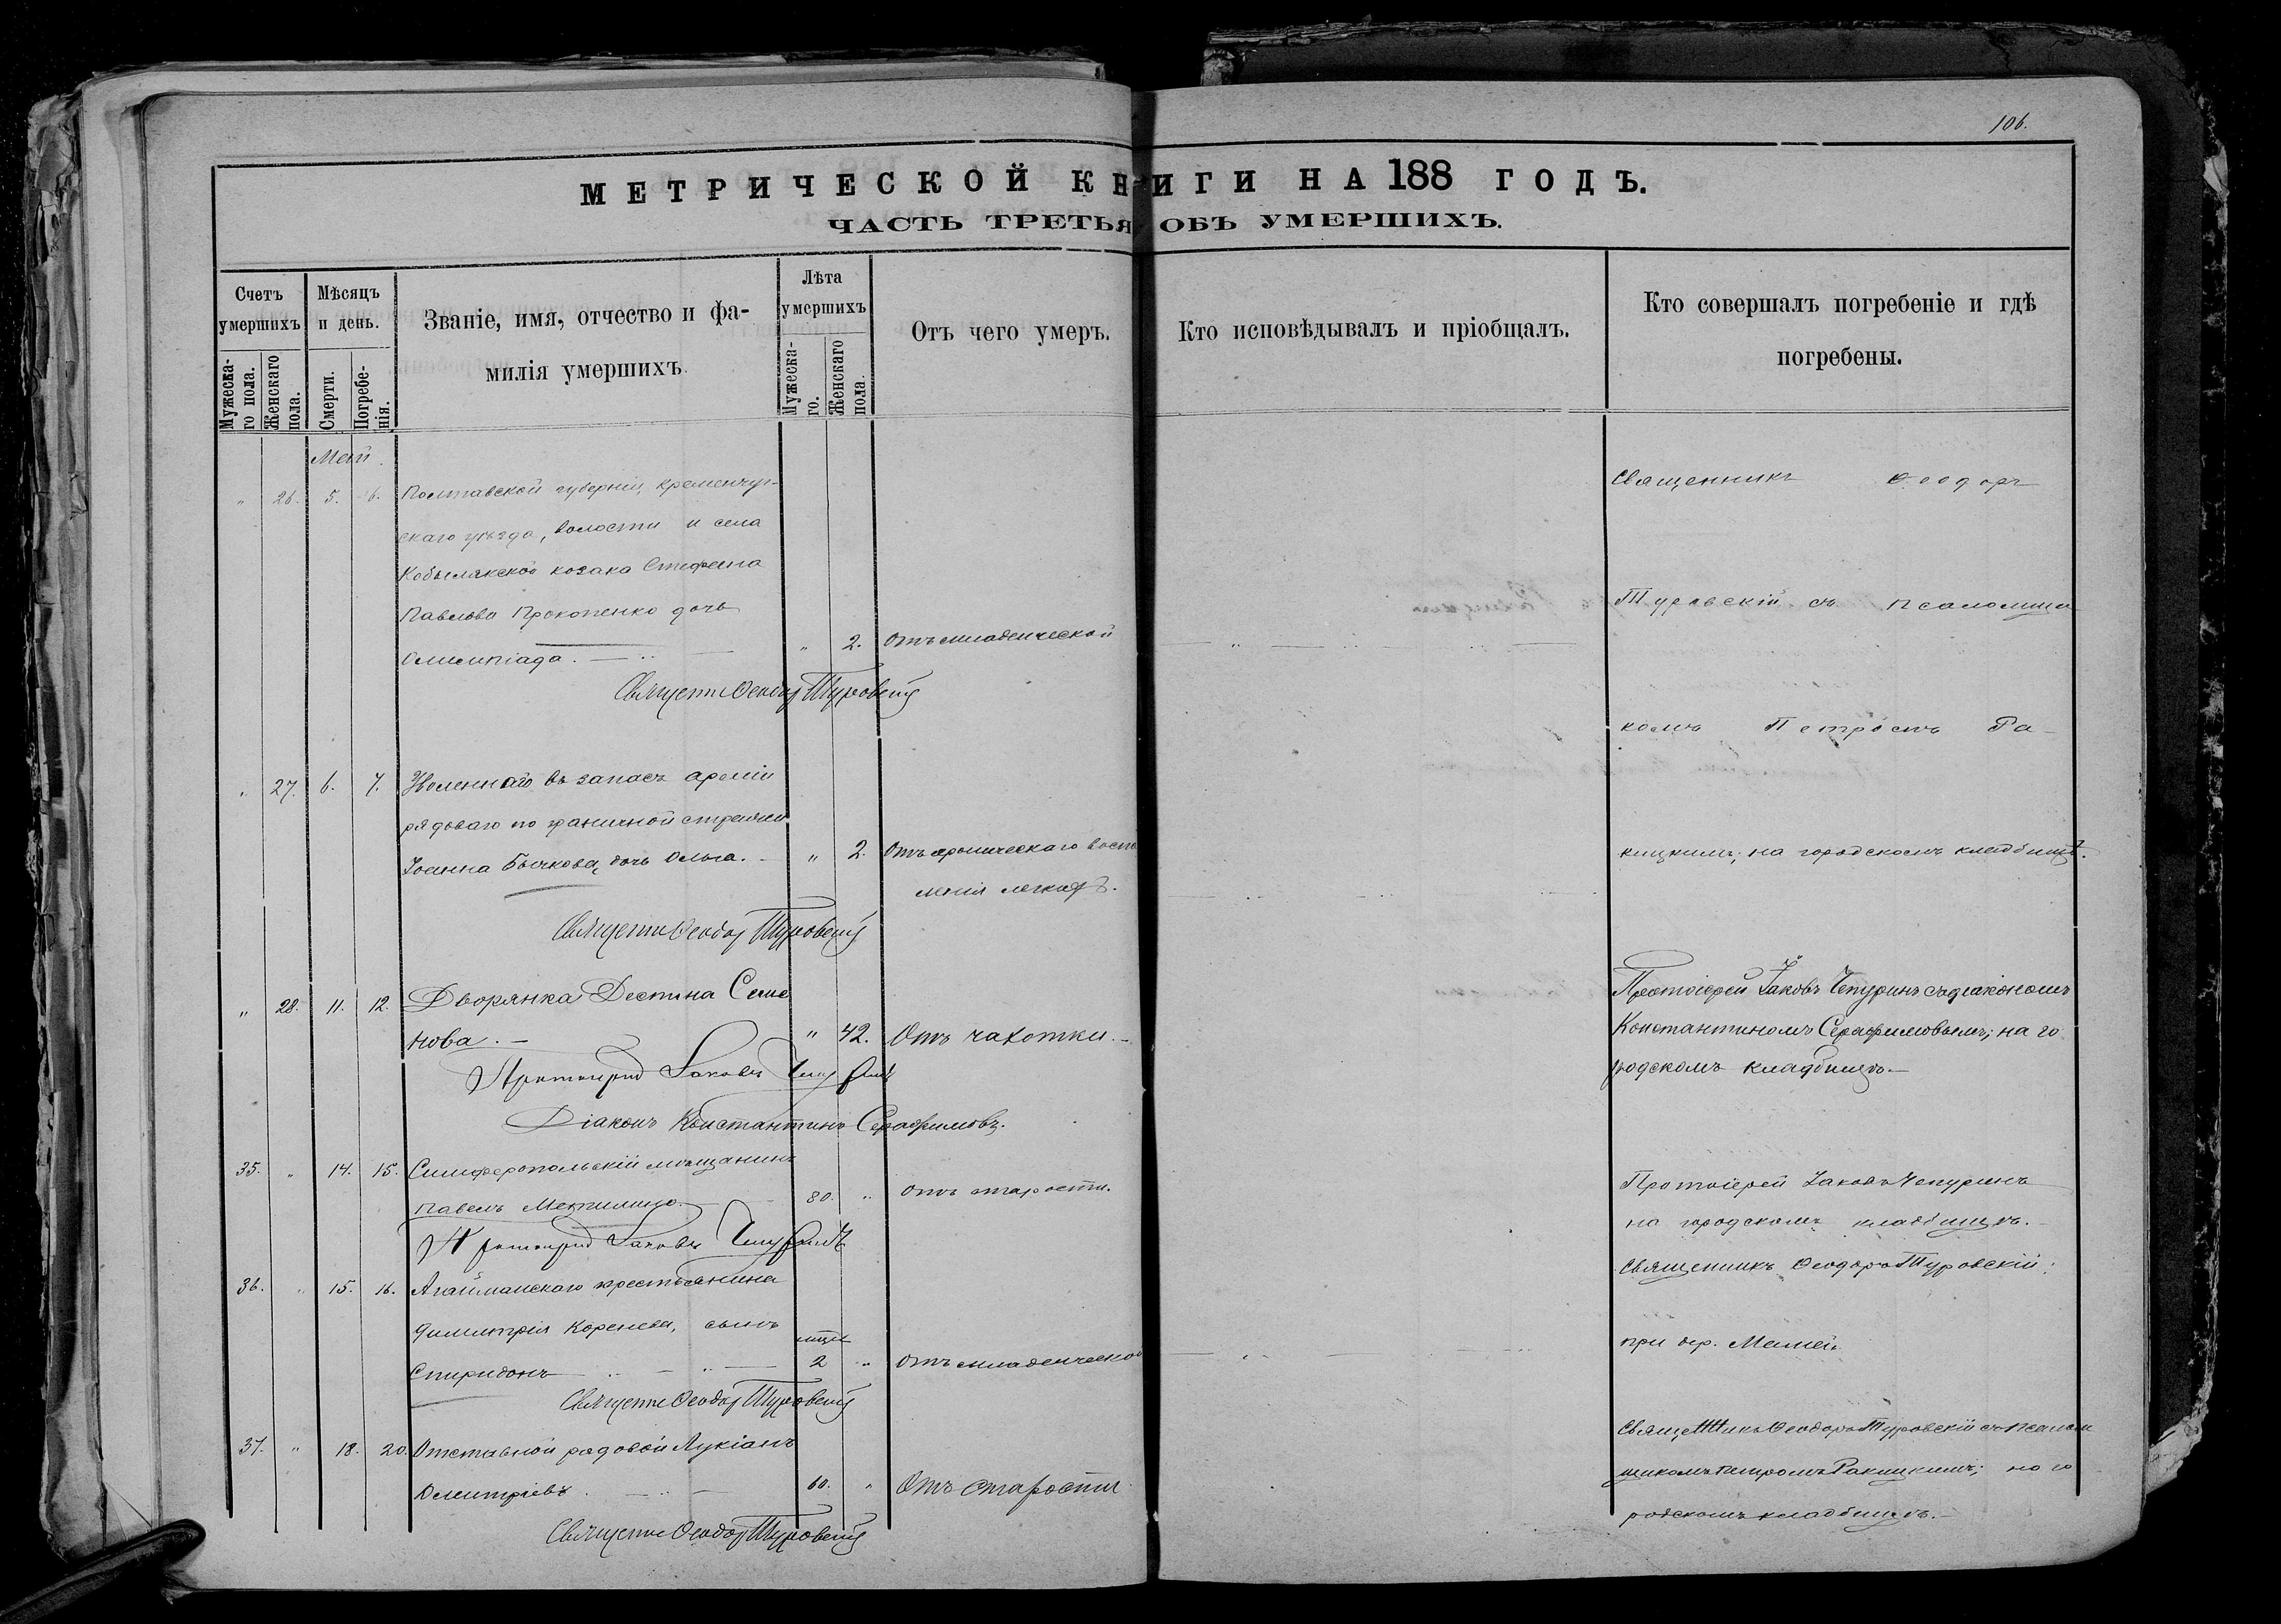 106.
МЕТРИЧЕСКОЙ КНИГИ НА 188 ГОДЪ.
ЧАСТЬ ТРЕТЬЯ ОБЪ УМЕРШИХЪ.
Счетъ умершихъ
Мужеска-го пола.
Женскаго пола.
Мѣсяцъ и день.
Смерти.
Погребе-нія.
Званіе, имя, отчество и фа-
милія умершихъ.
Лѣта умершихъ
Мужеска-го.
Женскаго пола.
Отъ чего умеръ.
Кто исповѣдывалъ и пріобщалъ.
Кто совершалъ погребеніе и гдѣ
погребены.
Май
" 26. 5. 6. Полтавской губерніи, Кременчуг-
скаго уѣзда, волости и села
Кобылякской козака Стефана
Павлова Прокопенко дочь
Олимпіада. " 2. Отъ младенческой
Священ. Ѳеодор Туровскій
Священникъ Ѳеодоръ
Туровскій съ псаломщи
комъ Петромъ Ра-
кицкимъ; на городскомъ кладбищѣ.
" 27. 6. 7. Уволеннаго въ запасъ арміи
рядоваго по граничной стражи
Іоанна Бычкова, дочь Ольга. " 2. Отъ хроническаго воспа
ленія легкихъ.
Священ. Ѳеодор Туровскій
" 28. 11. 12. Дворянка Деспина Семе
нова. " 42. Отъ чахотки.
Протоіерей Іаковъ Чепуринъ
Діаконъ Константинъ Серафимовъ.
Протоіерей Іаковъ Чепуринъ съ діакономъ
Константиномъ Серафимовымъ; на го
родскомъ кладбищѣ.
35. " 14. 15. Симферопольскій мѣщанинъ
Павелъ 80. " Отъ старости.
Протоіерей Іаковъ Чепуринъ
Протоіерей Іаковъ Чепуринъ
на городскомъ кладбищѣ.
36. " 15. 16. Агайманскаго крестьянина
Димитрія Коренева, сынъ
Спиридонъ мца 2 " Отъ младенческой
Священ. Ѳеодор Туровскій
Священникъ Ѳеодоръ Туровскій;
при дер.
37. " 18. 20. Отставной рядовой Лукіанъ
Дмитріевъ. 60. " Отъ старости
Священ. Ѳеодор Туровскій
Священникъ Ѳеодоръ Туровскій съ псалом
щикомъ Петромъ Ракицкимъ; на го
родскомъ кладбищѣ.